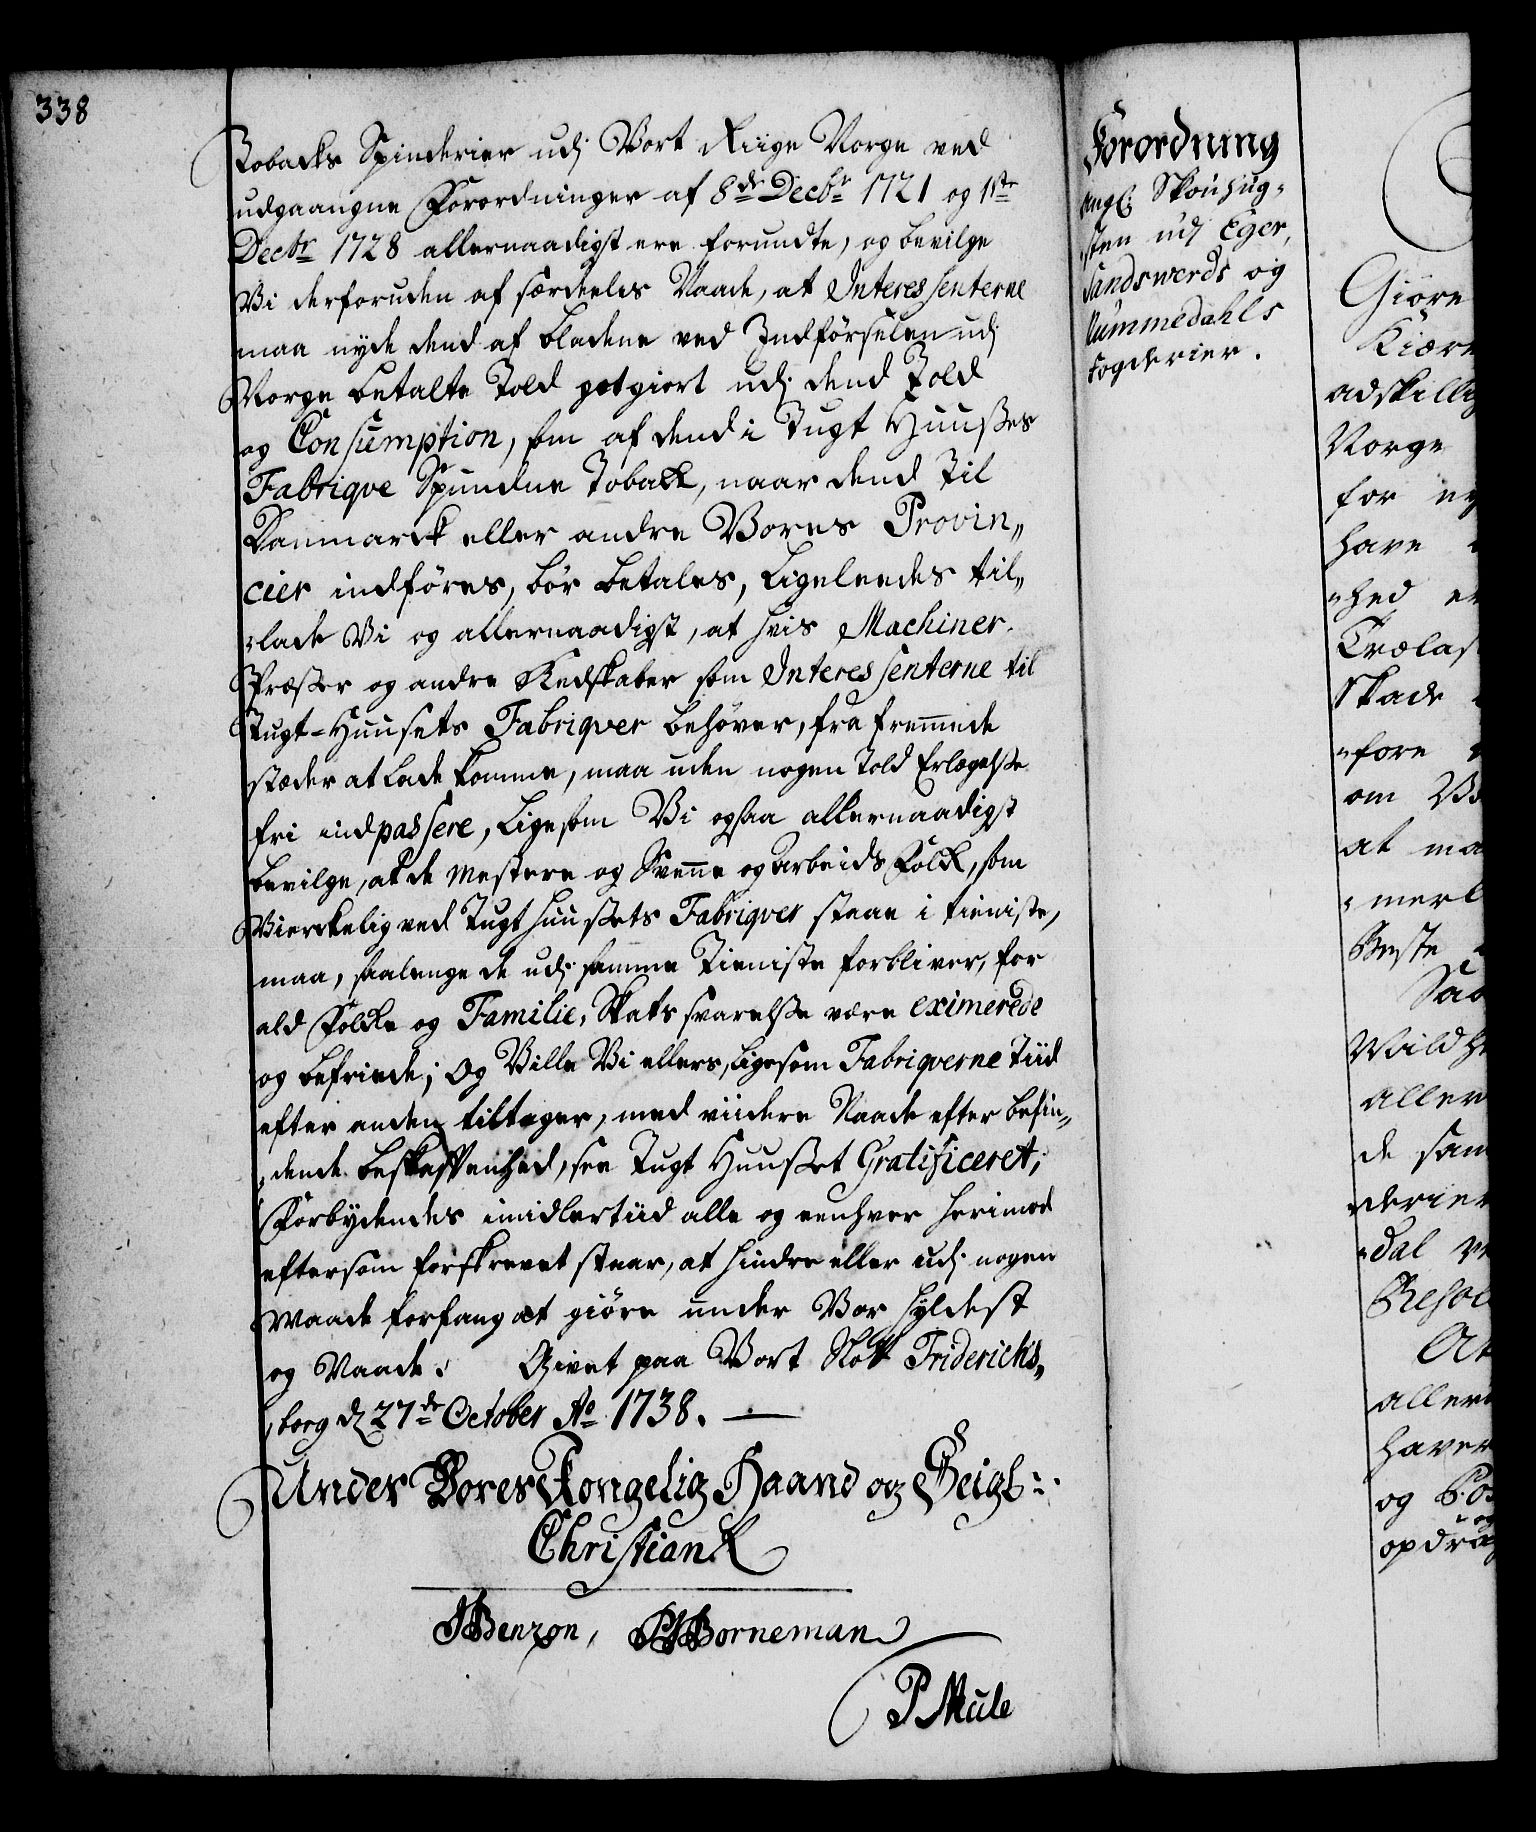 338
Tobacks Spinderier udj Vort Riige Norge ved
udgaangne Forordninger af 8de Decbr 1721 og 1ste
Decbr 1728 allernaadigst ere forundte, og bevilge
Vi derforuden af særdeeles Naade, at Interessenterne
maa nyde dend af bladene ved Indförselen udj
Norge betalte Told gotgiort udj dend Told
og Consumption, som af dend i Tugt Huusses
Fabriqve Spundne Toback, naar dend til
Danmarck eller andre Vores Provin„
cier indföres, bör betales, Ligeleedes til„
„lade Vi og allernaadigst, at hvis Machiner,
Præsser og andre Redskaber som Interessenterne til
Tugt-Huusets Fabriqver behöver, fra fremmede
stæder at lade komme, maa uden nogen Told Erlæggelsse
fri indpassere, Ligesom Vi ogsaa allernaadigst
bevilge, at de Mestere og Svenne og Arbeids Folck, som
Vierckelig ved Tugthuussets Fabriqver staae i tieniste,
maa, saalenge de udj samme Tieniste forbliver, for
ald Folcke og Familie, Skats svarelsse være eximerede
og befriede; Og Ville Vi ellers, ligesom Fabriqverne Tiid
efter anden tiltager, med viidere Naade efter befin„
„dende beskaffenhed, see Tugt Huusset Gratificeret;
Forbydendes imidlertiid alle og eenhver herimod
eftersom forskrevet staar, at hindre eller udj nogen
Maade forfang at giöre under Vor hyldest
og Naade. Givet paa Vort Slott Friderichs„
„borg d 27de October Ao 1738. —
Under Vores Kongelig Haand og Seigl.
Christian R
JBenzon, Borneman
P Mule
Forordning
angl: Skouhug„
sten udj Eger,
Sandsverds og
Nummedahls
Fogderier.
Giöre
Kiære
adskillig
Norge
for
have
„hed
Trælas
Skade
„fore
om
at ma
„merl
Beste
Saa
Mildh
aller
de sam
„derier
„dal
Resol
At
aller
haver
og
opdrag